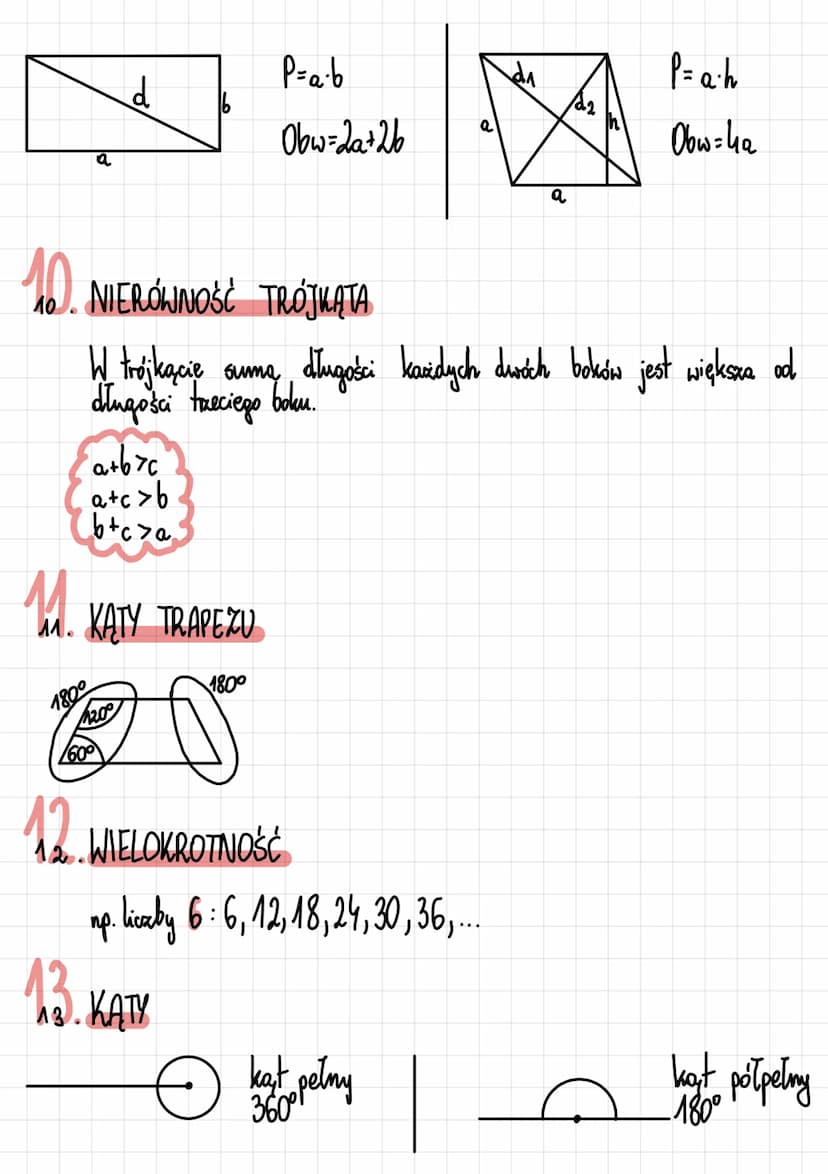 d
b
a
P=a·b
Obw=2a+2b
d1
d2
a
h
a
P=a·h
Obw=4a
10.
10. NIERÓWNOŚĆ TRÓJKĄTA
W trójkącie suma długości każdych dwóch boków jest większa od
długości trzeciego boku.
a+b>c
a+c>b
b+c>a
11.
11. KĄTY TRAPEZU
180°
180°
120°
60°
12.
12. WIELOKROTNOŚĆ
np. liczby 6: 6, 12, 18, 24, 30, 36, ...
13.
13. KĄTY
kąt pełny
360°
kąt półpełny
180°